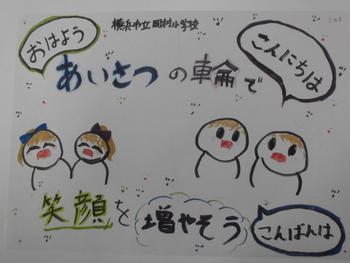 横浜市立岡村小学校
おはよう
こんにちは
あいさつの輪で
笑顔を増やそう
こんばんは